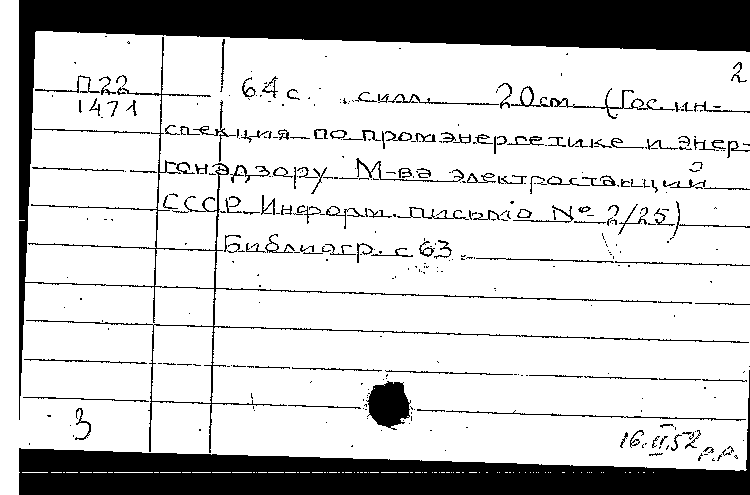 2
П22 64 с. с илл. 20 cm. (Гос. ин-
1471
спекция по промэнергетике и энер-
гонадзору М-ва электростанций
СССР. Информ. письмо № 2/25)
Библиогр. с 63.
3
16.II.52 р.р.